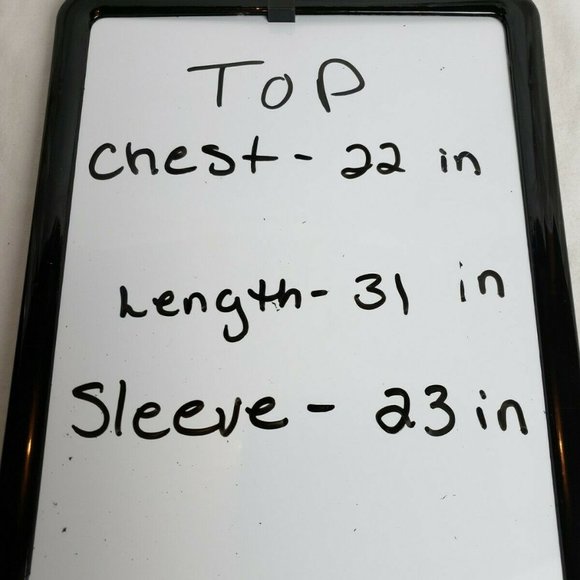 TOP
Chest - 22 in
Length - 31 in
Sleeve - 23 in